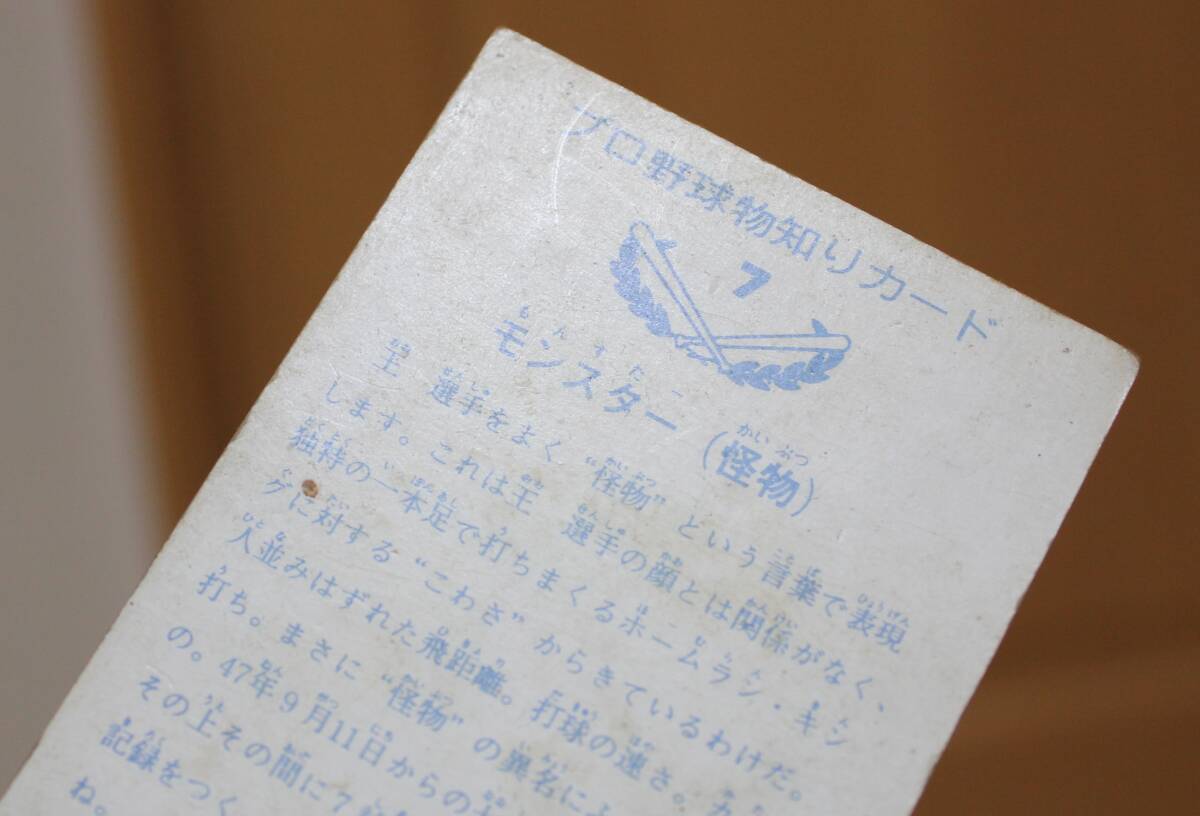 プロ野球物知りカード
7
もんすたー
モンスター(怪物)
かいぶつ
王 選手をよく“怪物”という言葉で表現
します。これは王 選手の顔とは関係がなく、
独特の一本足で打ちまくるホームラン・キン
グに対する“こわさ”からきているわけだ。
人並みはずれた飛距離。打球の速さ。
打ち。まさに“怪物”の異名に
の。47年9月11日からの
その上その間に7
記録をつく
ね。